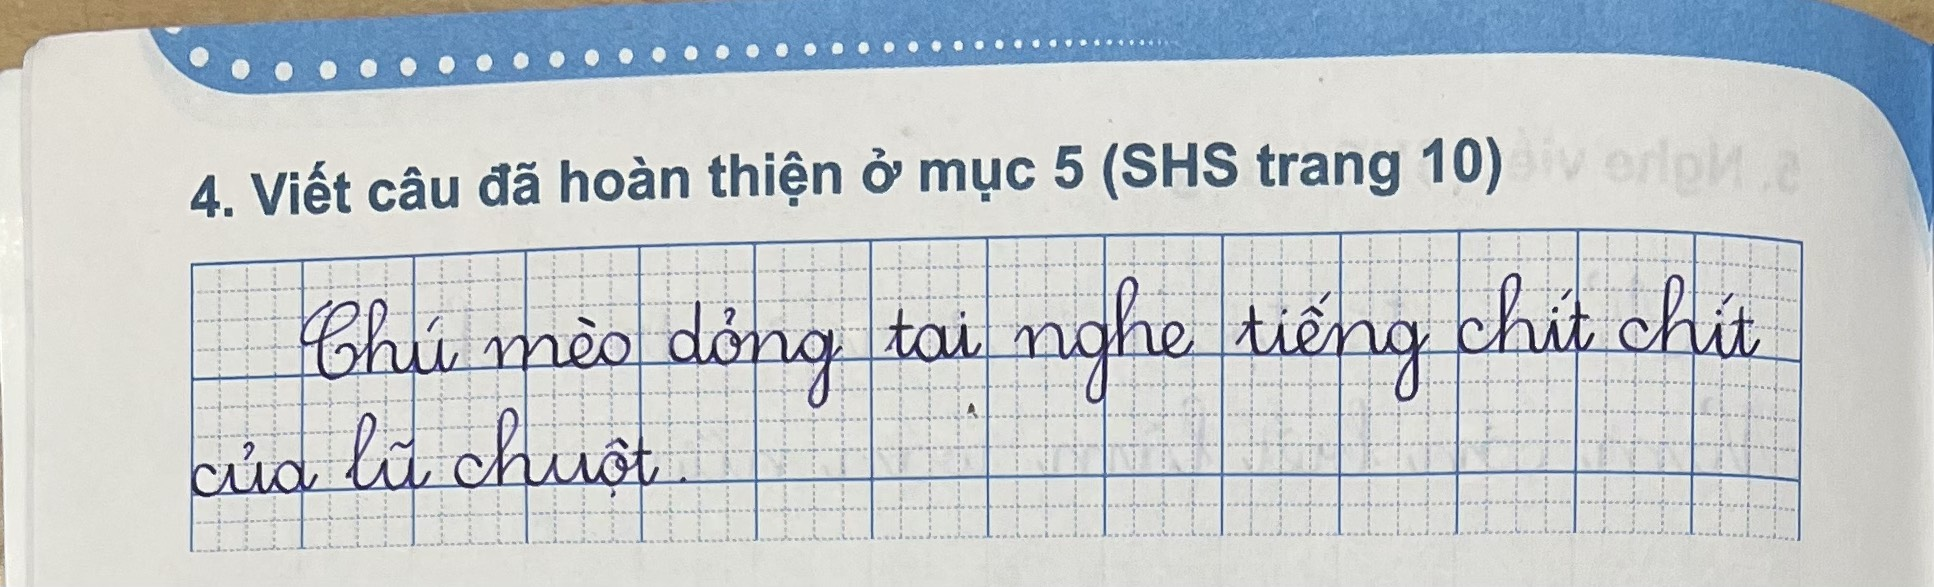 4. Viết câu đã hoàn thiện ở mục 5 (SHS trang 10)
Chú mèo dỏng tai nghe tiếng chít chít
của lũ chuột.